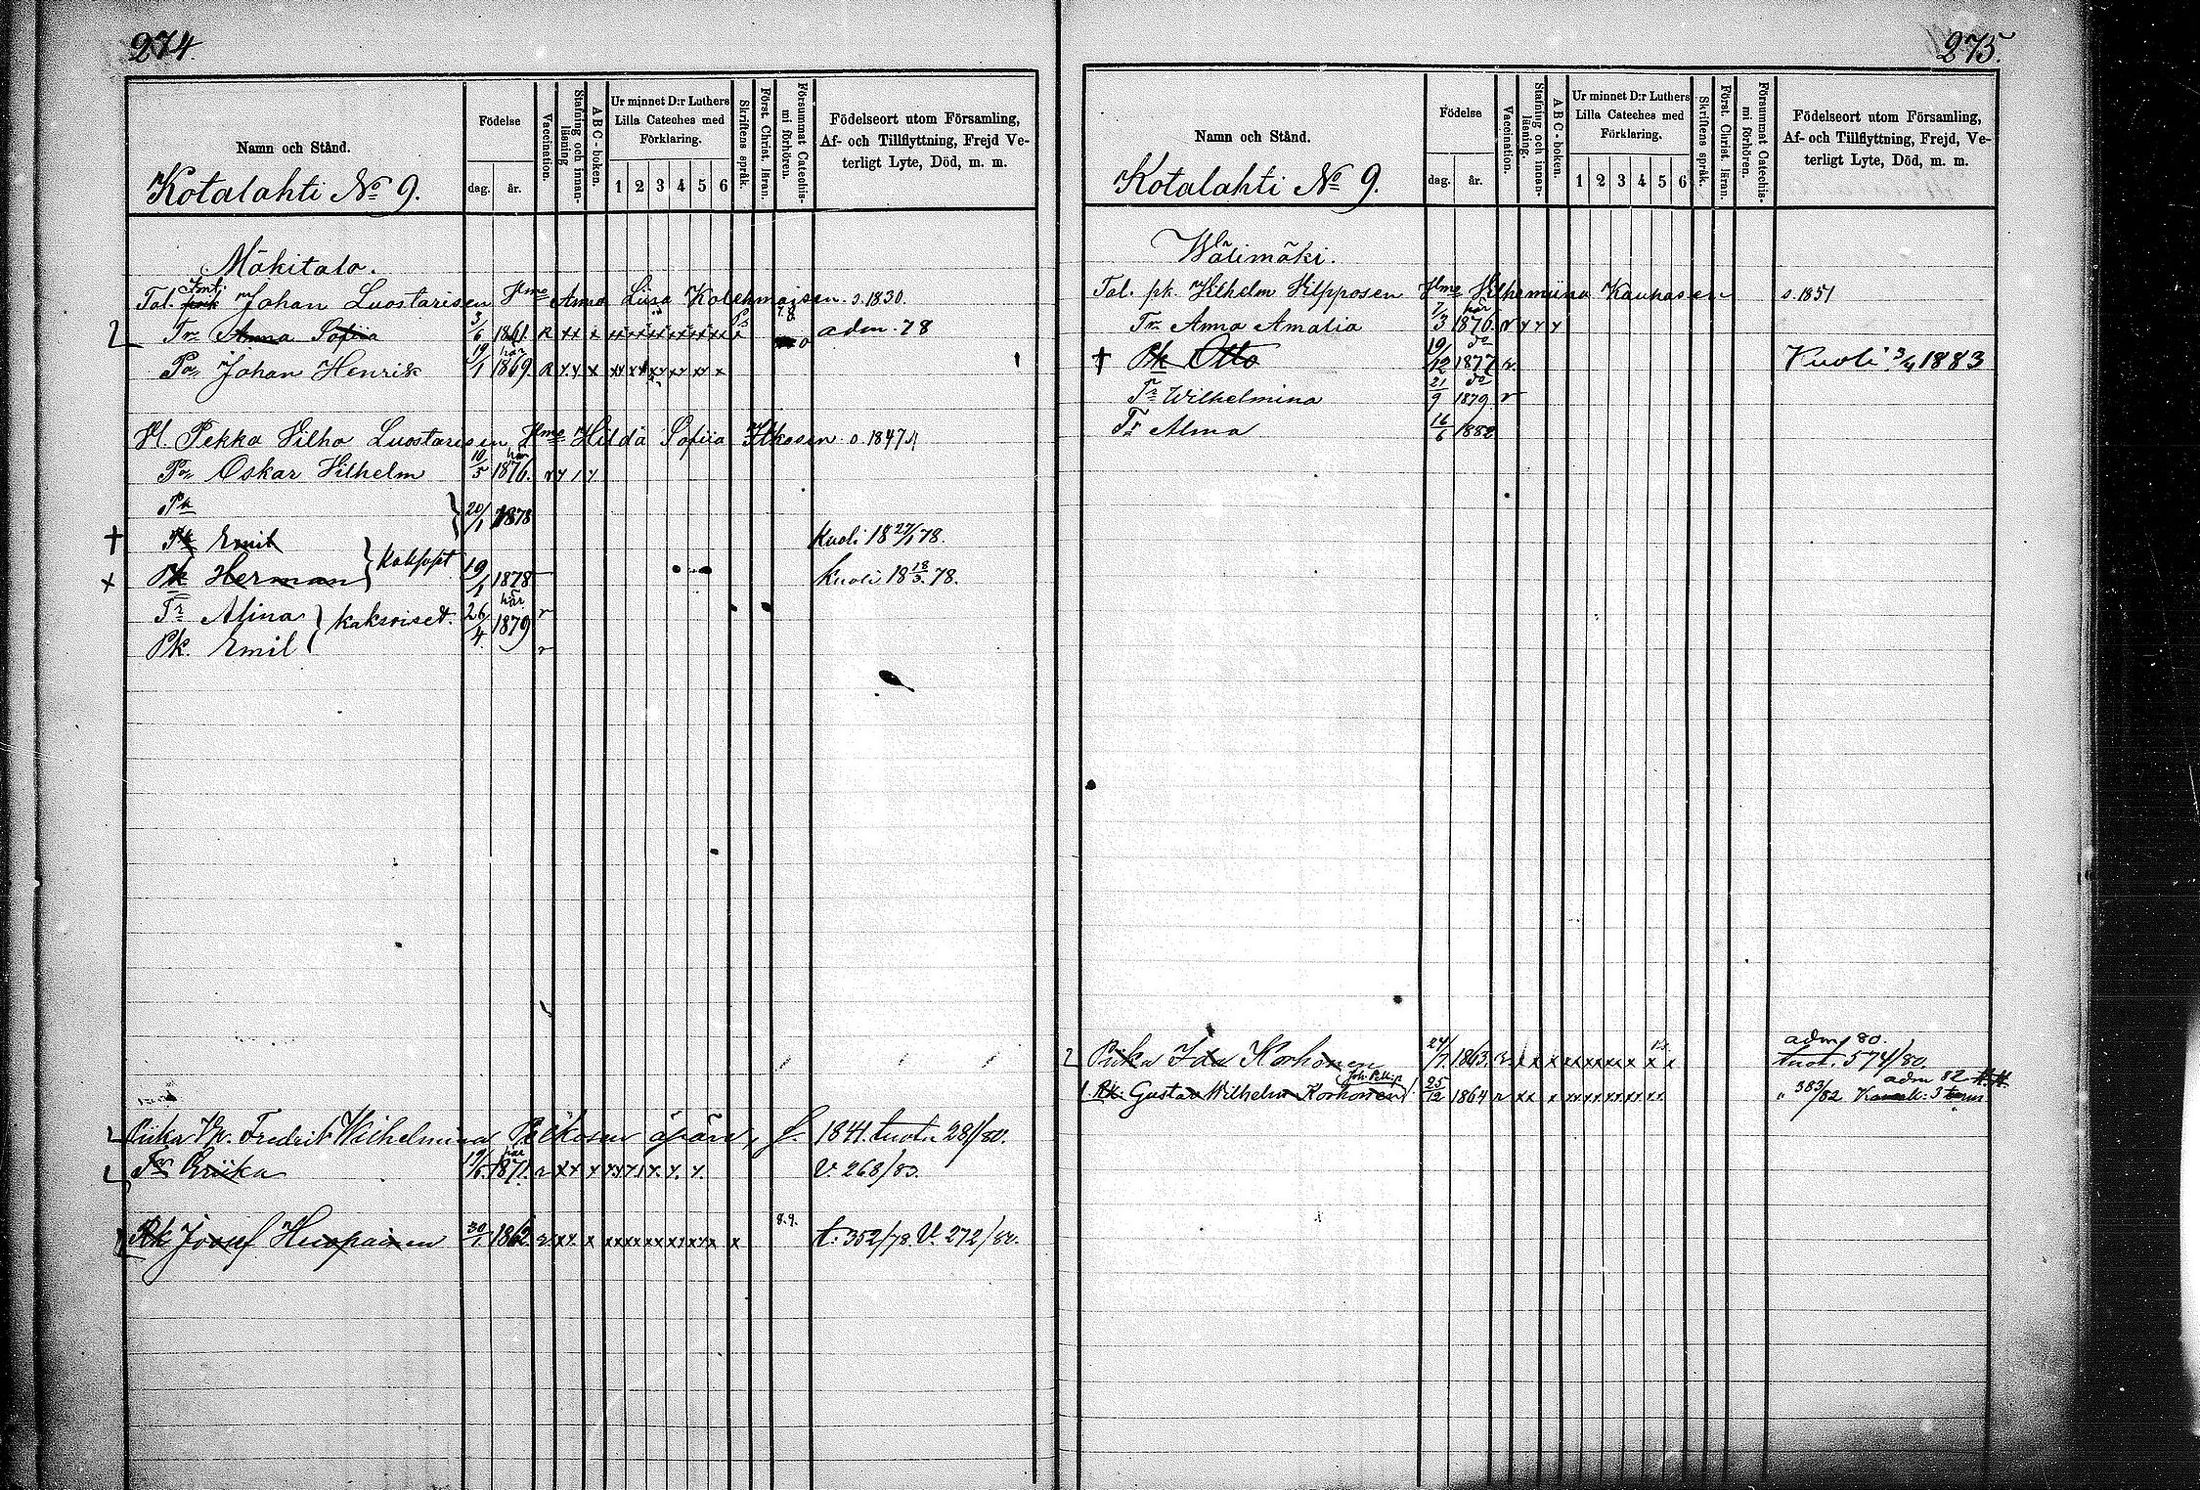 274.
Namn och Stånd.
Födelse
dag. år.
Vaccination.
Stafning och innan-läsning
ABC-boken.
Ur minnet D:r Luthers Lilla Cateches med Förklaring.
1 2 3 4 5 6
Skriftens språk.
Först. Christ. läran.
Försummat Catechis-mi förhören.
Födelseort utom Församling,
Af- och Tillflyttning, Frejd Ve-
terligt Lyte, Död, m. m.
Kotalahti No 9.
Mäkitalo.
Tal. Johan Luostarisen Hmo Anna Liisa Kolehmaisen s. 1830.
Tr. Anna Sofia 3/6 1861. adm. 78
Po. Johan Henrik 19/1 1869
Hl. Pekka Vilho Luostarisen Hmo Hilda Sofiia Itkosen s. 1847
Po. Oskar Vilhelm 10/5 1876.
Pk 20/1 1878
Pk Emil Kuoli 18 27/1 78.
Pk Herman 19/1 1878 Kuoli 18 18/3 78.
Tr Alina kaksoiset. 26/4 1879
Pk. Emil
Piika Fredrik Wilhelmina äpärä, f. 1844. 281/80.
Tr Eriika 1871. V. 268/83.
Rk Josef Huopainen 30/1 1862 t. 352/78. V. 272/80.
275.
Namn och Stånd.
Födelse
dag. år.
Vaccination.
Stafning och innan-läsning.
ABC-boken.
Ur minnet D:r Luthers Lilla Cateches med Förklaring.
1 2 3 4 5 6
Skriftens språk.
Först. Christ. läran.
Försummat Catechis-mi förhören.
Födelseort utom Församling,
Af- och Tillflyttning, Frejd, Ve-
terligt Lyte, Död, m. m.
Kotalahti No 9.
Wälimäki.
Tal. pk. Vilhelm Hilpposen Hmo Vilhemiina Kauhasen s. 1851
Tr. Anna Amalia 7/3 1876.
† Pk Otto 19/12 1877 Kuoli 3/4 1883
Tr Wilhelmina 21/9 1879.
Tr Alma 16/6 1882
adm 80.
Piika Ida Korhonen 24/7 1863. tuot. 574/80.
adm 82
Rk. Gustav Wilhelm Korhonen 25/12 1864 383/82